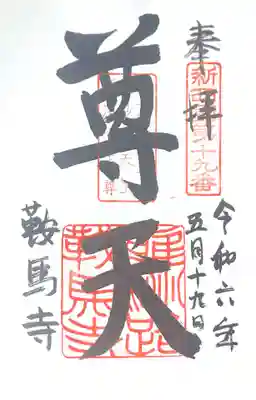 奉拝
十九番
令和六年
五月十九日
尊天
鞍馬寺
鞍馬寺